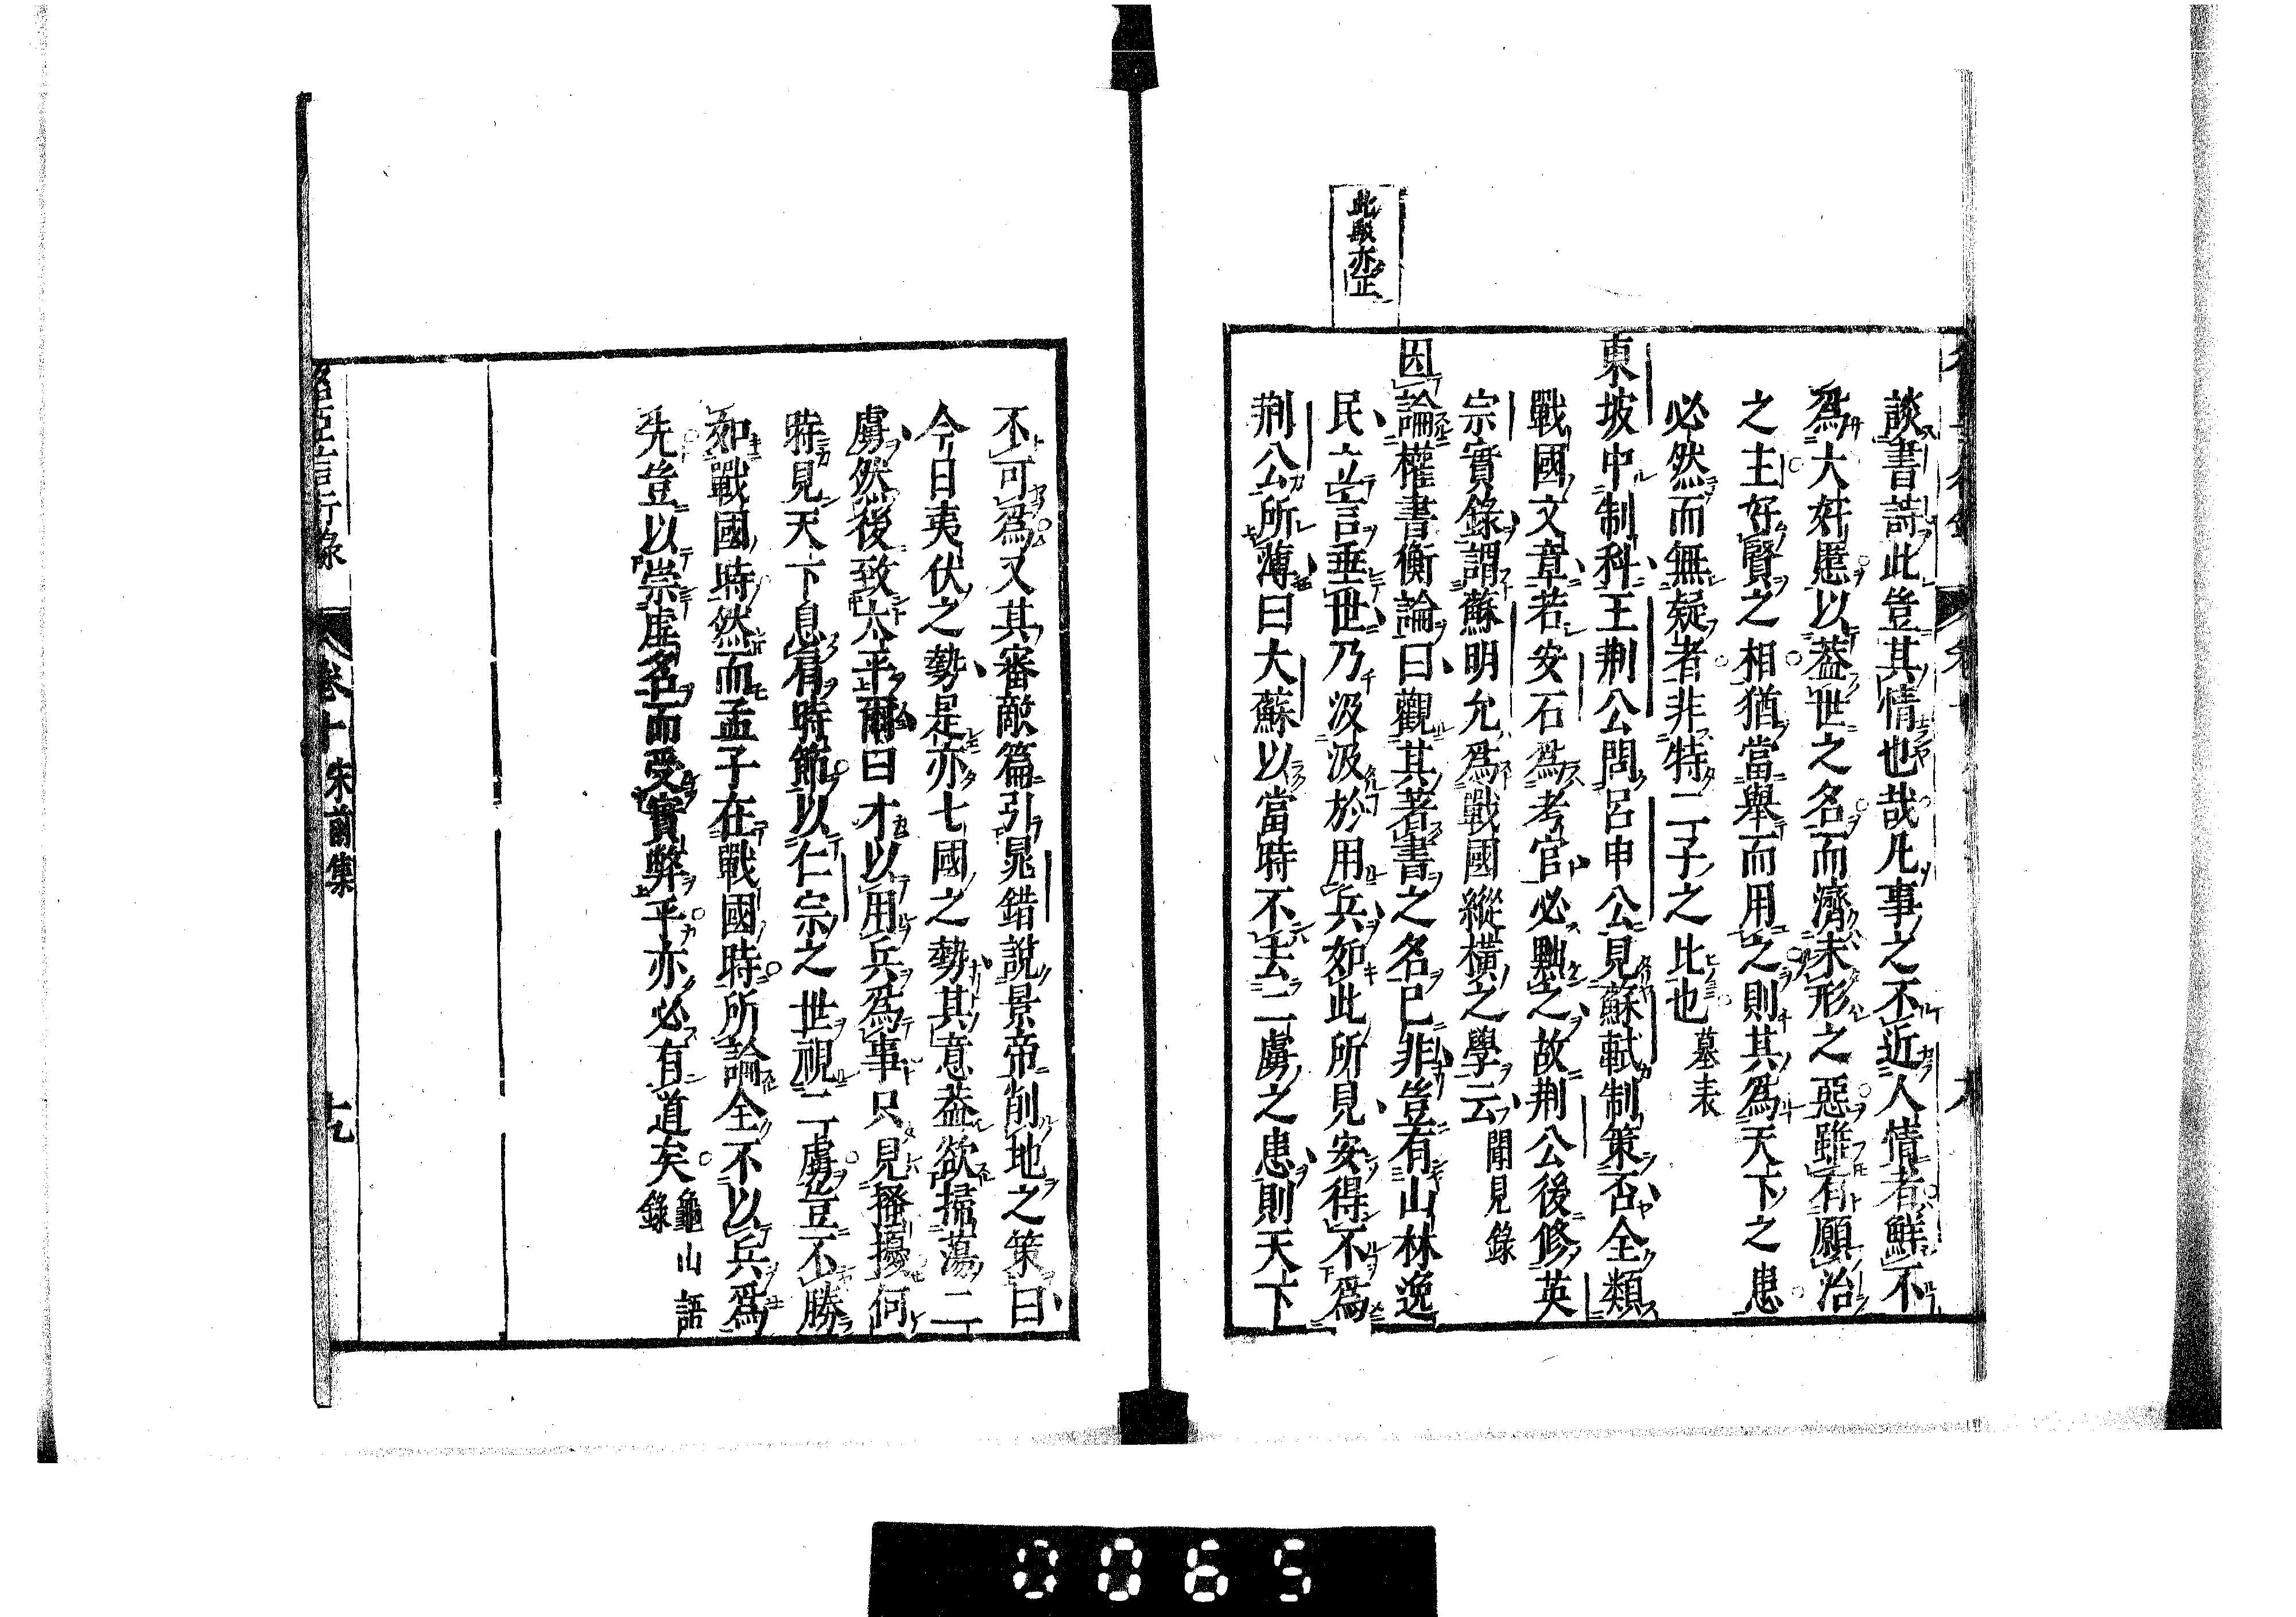 此段亦正
談書詩此豈其情也哉凡事之不近人情者鮮不
爲大奸慝以蓋世之名而濟未形之惡雖有願治
之主好賢之相猶當舉而用之則其爲天下之患
必然而無疑者非特二子之比也墓表
東坡中制科王荆公問呂申公見蘇軾制策否全類
戰國文章若安石爲考官必黜之故荆公後修英
宗實錄謂蘇明允爲戰國縱橫之學云聞見錄
因論權書衡論曰觀其著書之名已非豈有山林逸
民立言垂世乃汲汲於用兵如此所見安得不爲
荆公所薄曰大蘇以當時不去二虜之患則天下
不可爲又其審敵篇引晁錯說景帝削地之策曰
今日夷伏之勢是亦七國之勢其意蓋欲掃蕩二
虜然後致太平爾曰才以用兵爲事只見搔擾何
時見天下息肩時節以仁宗之世視二虜豈不勝
如戰國時然而孟子在戰國時所論全不以兵爲
先豈以崇虛名而受實弊乎亦必有道矣龜山語
錄
言行錄 卷十宋前集 十九
0065